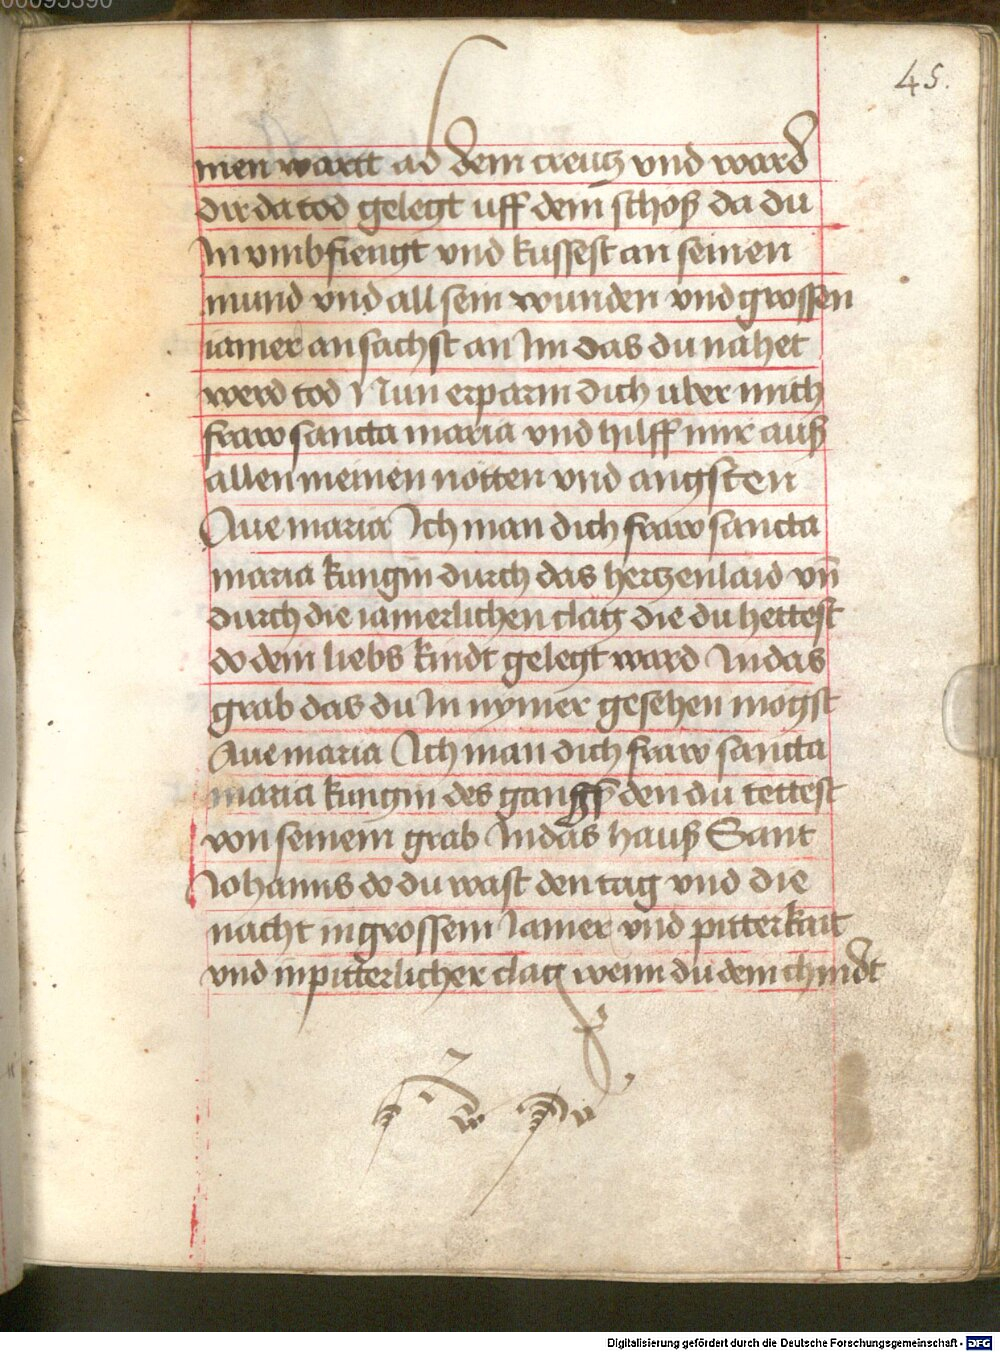 00095390
45.
men wartt ab dem creutz vnd ward
dir da tod gelegt uff dein schoß da du
In vmbfiengt vnd kussest an seinen
mund vnd all sein wunden vnd grossen
iamer an sachst an Im das du nahet
werd tod Nun erparm dich uber mich
fraw sancta maria vnd hilff mir auß
allen meinen nötten vnd angsten
Aue maria Ich man dich fraw sancta
maria kungin durch das hertzenlaid vn̄
durch die iamerlichen clag die du hettest
do dein liebs kindt gelegt ward In das
grab das du In nymer gesehen mogst
Aue maria Ich man dich fraw sancta
maria kungin des gangß den du tettest
von seinem grab In das hauß Sant
Iohanns do du wast den tag vnd die
nacht in grossem Iamer vnd pitterkait
vnd in pitterlicher clag wenn du dein chindt
Digitalisierung gefördert durch die Deutsche Forschungsgemeinschaft - DFG